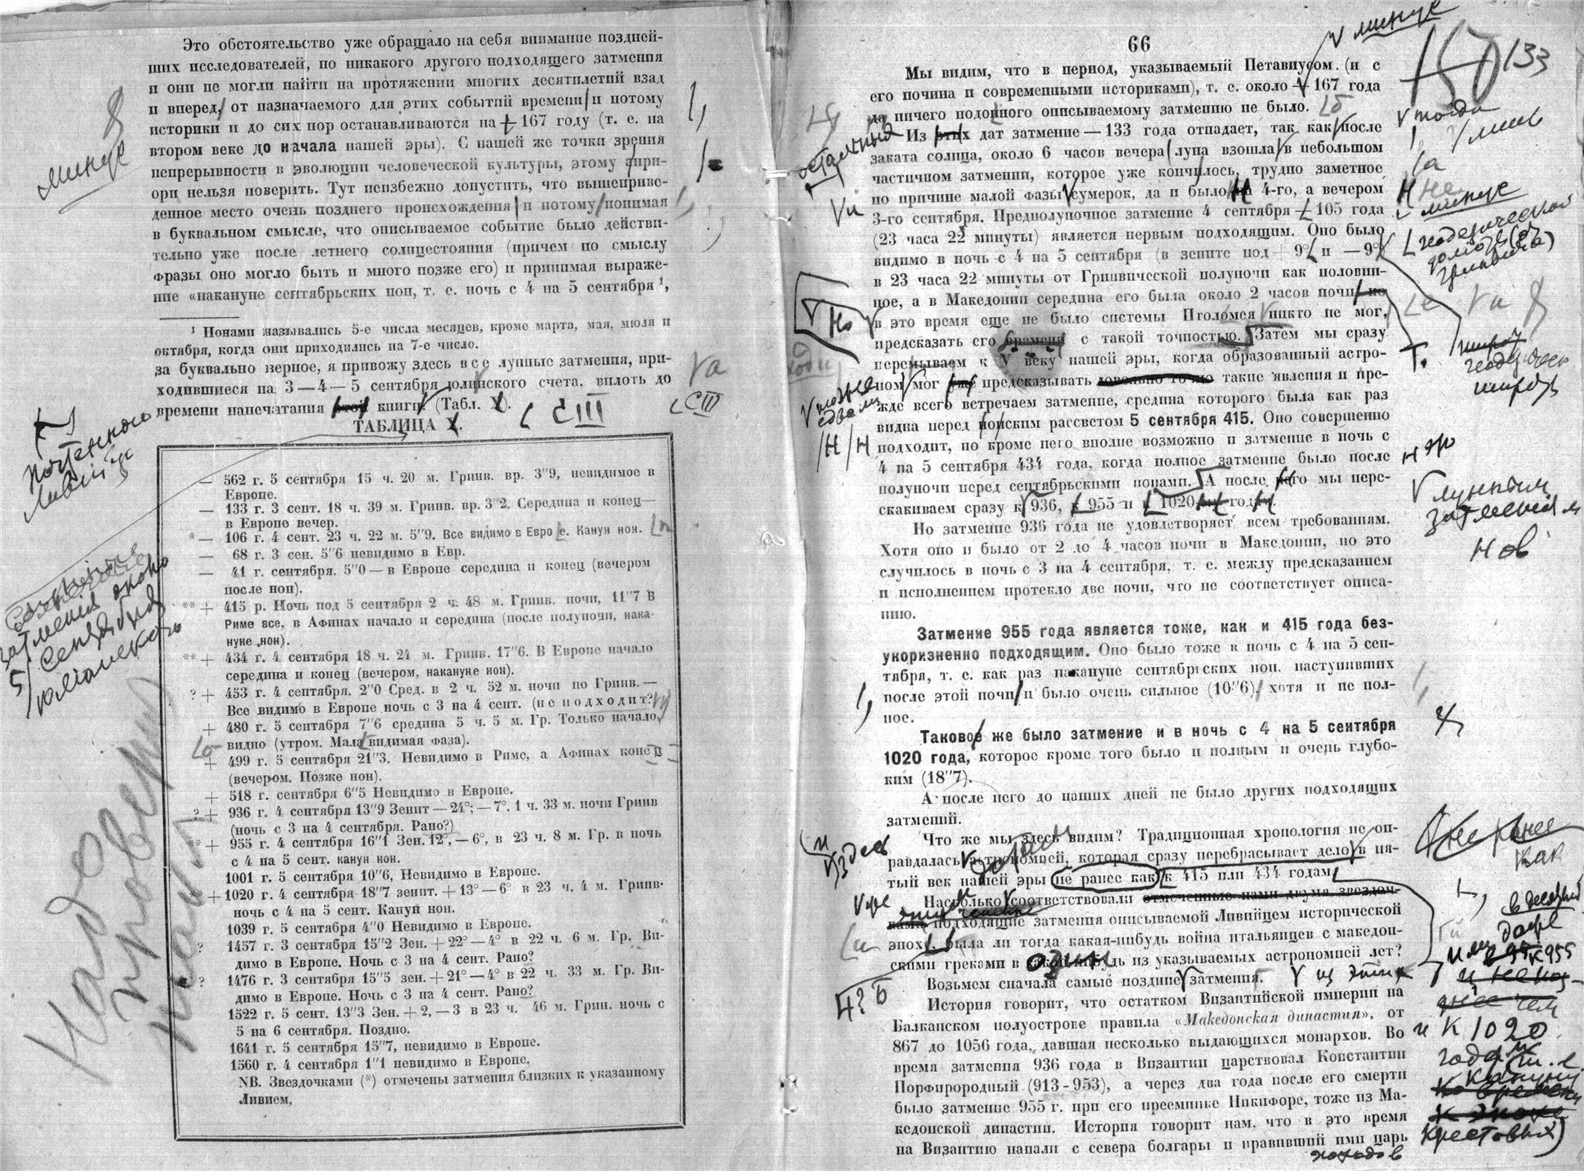 Это обстоятельство уже обращало на себя внимание поздней-
ших исследователей, но никакого другого подходящего затмения
и они не могли найти на протяжении многих десятилетий взад
и вперед, от назначаемого для этих событий времени и потому
историки и до сих пор останавливаются на + 167 году (т. е. на
втором веке до начала нашей эры). С нашей же точки зрения
непрерывности в эволюции человеческой культуры, этому априо-
ори нельзя поверить. Тут неизбежно допустить, что вышеприве-
денное место очень позднего происхождения и потому понимая
в буквальном смысле, что описываемое событие было действи-
тельно уже после летнего солнцестояния (причем по смыслу
фразы оно могло быть и много позже его) и принимая выраже-
ние «накануне сентябрьских нон, т. е. ночь с 4 на 5 сентября ¹,
¹ Нонами назывались 5-е числа месяцев, кроме марта, мая, июля и
октября, когда они приходились на 7-е число.
за буквально верное, я привожу здесь все лунные затмения, при-
ходившиеся на 3—4—5 сентября юлинского счета, вплоть до
времени напечатания этой книги (Табл. X).
ТАБЛИЦА X.
— 562 г. 5 сентября 15 ч. 20 м. Гринв. вр. 3"9, невидимое в
Европе.
— 133 г. 3 сент. 18 ч. 39 м. Гринв. вр. 3"2. Середина и конец—
в Европе вечер.
*— 106 г. 4 сент. 23 ч. 22 м. 5"9. Все видимо в Европе. Канун нон.
— 68 г. 3 сен. 5"6 невидимо в Евр.
— 41 г. сентября. 5"0—в Европе середина и конец (вечером
после нон).
**+ 415 р. Ночь под 5 сентября 2 ч. 48 м. Гринв. ночи, 11"7 В
Риме все, в Афинах начало и середина (после полуночи, нака-
нуне нон).
**+ 434 г. 4 сентября 18 ч. 24 м. Гринв. 17"6. В Европе начало
середина и конец (вечером, накануне нон).
?+ 453 г. 4 сентября. 2"0 Сред. в 2 ч. 52 м. ночи по Гринв.—
Все видимо в Европе ночь с 3 на 4 сент. (не подходит?
+ 480 г. 5 сентября 7"6 средина 5 ч. 5 м. Гр. Только начало
видно (утром. Мала видимая фаза).
+ 499 г. 5 сентября 21"3. Невидимо в Риме, а Афинах конец
(вечером. Позже нон).
+ 518 г. сентября 6"5 Невидимо в Европе.
?+ 936 г. 4 сентября 13"9 Зенит —24°; —7°. 1 ч. 33 м. ночи Гринв
(ночь с 3 на 4 сентября. Рано?)
**+ 955 г. 4 сентября 16"1 Зен. 12°, —6°, в 23 ч. 8 м. Гр. в ночь
с 4 на 5 сент. канун нон.
1001 г. 5 сентября 10"6, Невидимо в Европе.
+1020 г. 4 сентября 18"7 зенит. +13°—6° в 23 ч. 4 м. Гринв.
ночь с 4 на 5 сент. Канун нон.
1039 г. 5 сентября 4"0 Невидимо в Европе.
? 1457 г. 3 сентября 15"2 Зен. +22°—4° в 22 ч. 6 м. Гр. Ви-
димо в Европе. Ночь с 3 на 4 сент. Рано?
? 1476 г. 3 сентября 15"5 зен. +21°—4° в 22 ч. 33 м. Гр. Ви-
димо в Европе. Ночь с 3 на 4 сент. Рано?
1522 г. 5 сент. 13"3 Зен. +2, —3 в 23 ч. 46 м. Грин. ночь с
5 на 6 сентября. Поздно.
1641 г. 5 сентября 15"7, невидимо в Европе.
1560 г. 4 сентября 1"1 невидимо в Европе.
NB. Звездочками (*) отмечены затмения близких к указанному
Ливием,
минус
почтенного
Ливия
затмения около
5 сентября
юлианского
Надо
проверить
CIII
CIII
66
Мы видим, что в период, указываемый Петавиусом (и с
его почина и современными историками), т. е. около 167 года
да ничего подобного описываемому затмению не было.
Из этих дат затмение — 133 года отпадает, так как после
заката солнца, около 6 часов вечера луна взошла в небольшом
частичном затмении, которое уже кончилось, трудно заметное
по причине малой фазы сумерок, да и было на 4-го, а вечером
3-го сентября. Предполуночное затмение 4 сентября + 105 года
(23 часа 22 минуты) является первым подходящим. Оно было
видимо в ночь с 4 на 5 сентября (в зените под + 9° и —9°
в 23 часа 22 минуты от Гринвической полуночи как половин-
ное, а в Македонии середина его была около 2 часов ночи, но
в это время еще не было системы Птоломея никто не мог,
предсказать его времени с такой точностью. Затем мы сразу
перерываем к V веку нашей эры, когда образованный астро-
ном мог уже предсказывать довольно точно такие явления и пре-
жде всего встречаем затмение, средина которого была как раз
видна перед нонским рассветом 5 сентября 415. Оно совершенно
подходит, но кроме него вполне возможно и затмение в ночь с
4 на 5 сентября 434 года, когда полное затмение было после
полуночи перед сентябрьскими нонами. А после него мы пере-
скакиваем сразу к 936, к 955 и к 1020 годам.
Но затмение 936 года не удовлетворяет всем требованиям.
Хотя оно и было от 2 до 4 часов ночи в Македонии, но это
случилось в ночь с 3 на 4 сентября, т. е. между предсказанием
и исполнением протекло две ночи, что не соответствует описа-
нию.
Затмение 955 года является тоже, как и 415 года без-
укоризненно подходящим. Оно было тоже в ночь с 4 на 5 сен-
тября, т. е. как раз накануне сентябрьских нон, наступивших
после этой ночи и было очень сильное (10"6), хотя и не пол-
ное.
Таковое же было затмение и в ночь с 4 на 5 сентября
1020 года, которое кроме того было и полным и очень глубо-
ким (18"7).
А после него до наших дней не было других подходящих
затмений.
Что же мы здесь видим? Традиционная хронология не оп-
равдалась астрономией, которая сразу перебрасывает дело в пя-
тый век нашей эры не ранее как к 415 или 434 годам.
Насколько соответствовали отмеченные нами двумя звездоч-
ками подходящие затмения описываемой Ливийцем исторической
эпохе, была ли тогда какая-нибудь война итальянцев с македон-
скими греками в какой-нибудь из указываемых астрономией лет?
Возьмем сначала самые поздние затмения.
История говорит, что остатком Византийской империи на
Балканском полуострове правила «Македонская династия», от
867 до 1056 года, давшая несколько выдающихся монархов. Во
время затмения 936 года в Византии царствовал Константин
Порфирородный (913-953), а через два года после его смерти
было затмение 955 г. при его преемнике Никифоре, тоже из Ма-
кедонской династии. История говорит нам, что в это время
на Византию напали с севера болгары и правивший ими царь
минус
133
тогда
лишь
минус
геодезическая
долгота (от
Гринвича)
широта
лунным
затмениям
нов
здесь
один
из этих
не ранее
как
к 955
и к 1020
годам
т. е.
кануну
крестовых)
походов